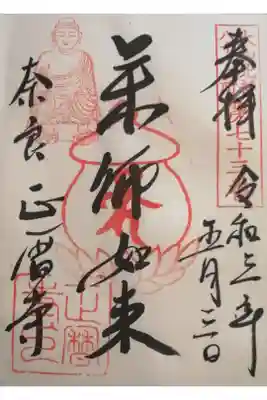 奉拝
令和三年
五月三日
七十三
薬師如来
奈良 正暦寺